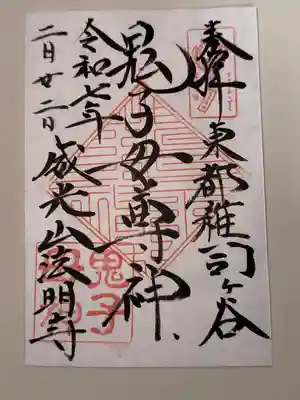 奉拝
東都雑司ヶ谷
鬼子母尊神
令和七年
二月廿二日
威光山法明寺
鬼子
母神